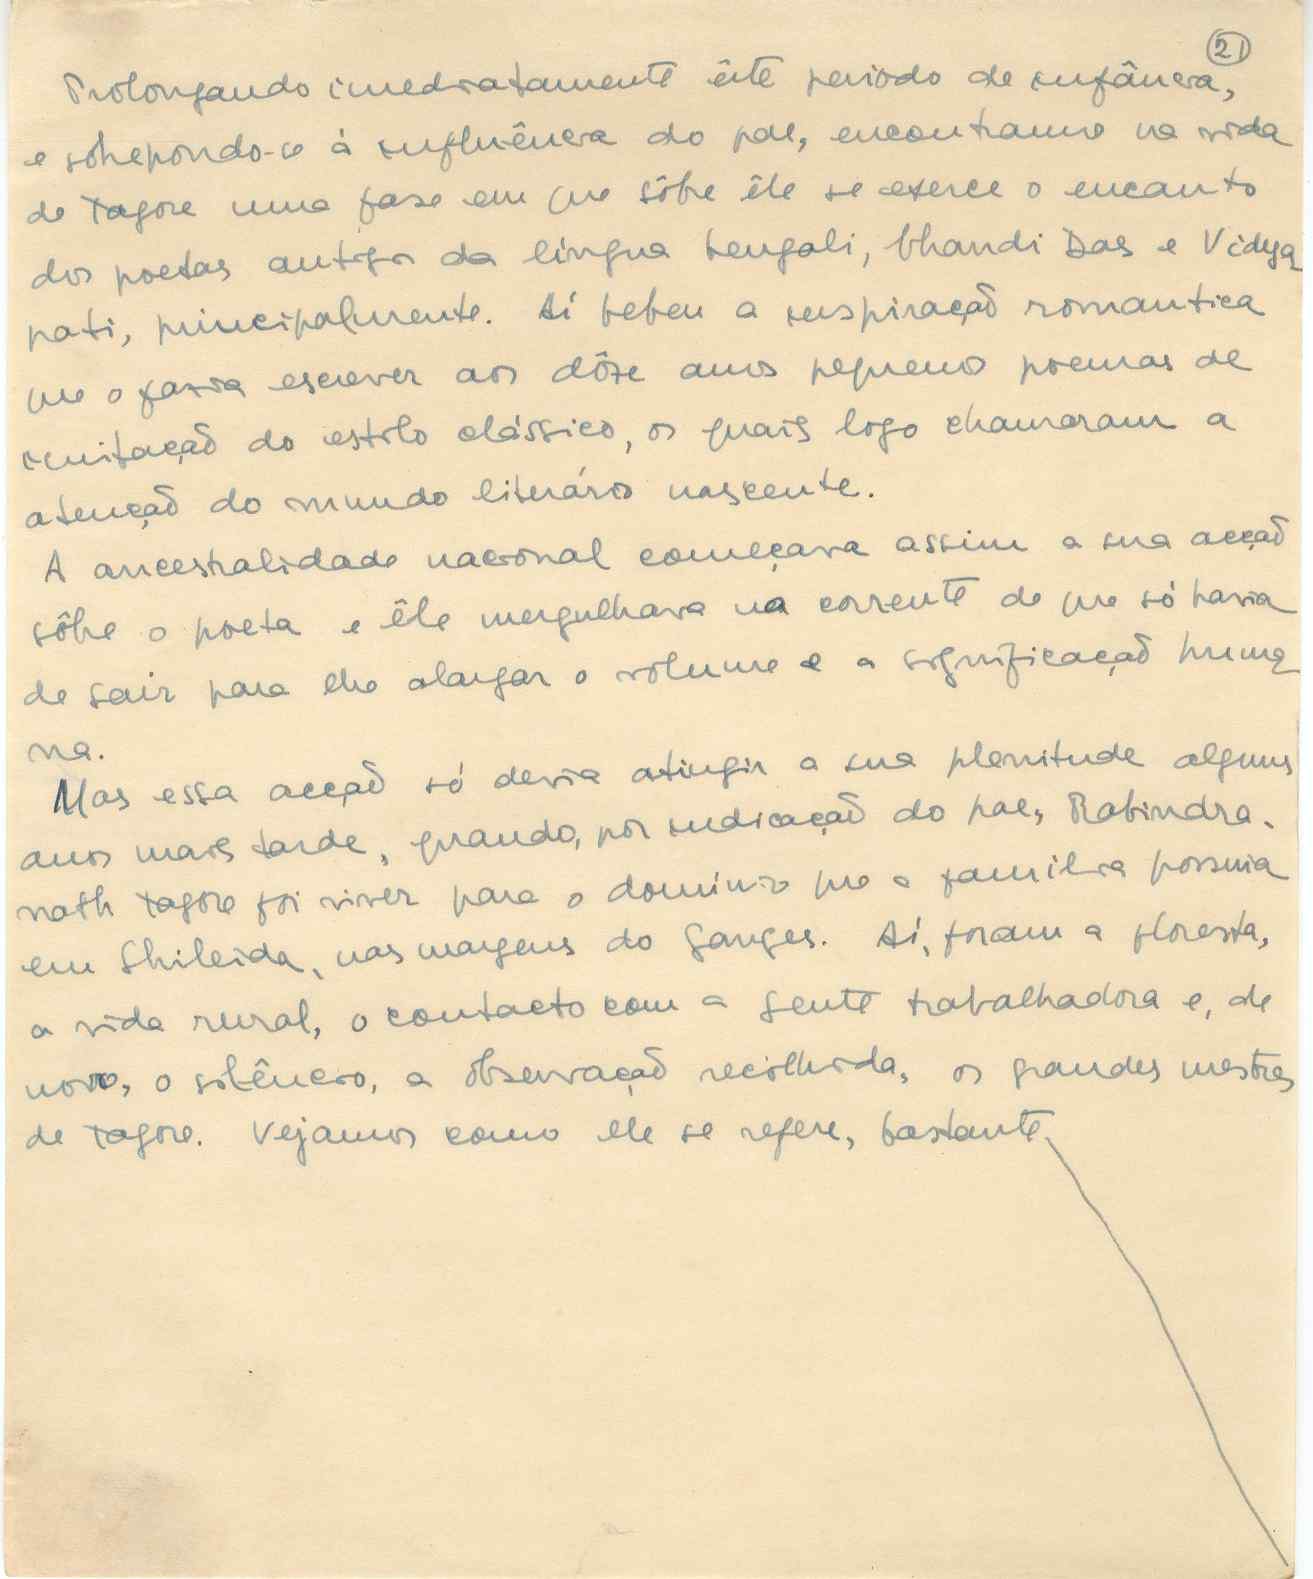 21
Prolongando imediatamente êste periodo de infância,
e sobrepondo-se à influência do pae, encontramo na vida
de Tagore uma fase em que sôbre êle se exerce o encanto
dos poetas antigos da língua bengali, Chandi Das e Vidya
pati, principalmente. Aí bebeu a inspiração romantica
que o fazia escrever aos dôze anos pequenos poemas de
imitação do estilo clássico, os quais logo chamaram a
atenção do mundo literário nascente.
A ancestralidade nacional começava assim a sua acção
sôbre o poeta e êle mergulhava na corrente de que só havia
de sair para lhe alargar o volume e a significação huma
na.
Mas essa acção só devia atingir a sua plenitude alguns
anos mais tarde, quando, por indicação do pae, Rabindra-
nath Tagore foi viver para o domínio que a familia possuia
em Shileida, nas margens do Ganges. Aí, foram a floresta,
a vida rural, o contacto com a gente trabalhadora e, de
novo, o silêncio, a observação recolhida, os grandes mestres
de Tagore. Vejamos como ele se refere, bastante